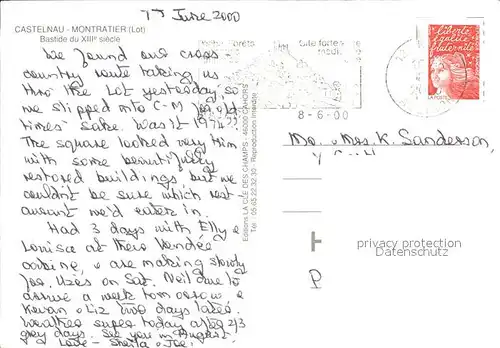 7th June 2000
CASTELNAU - MONTRATIER (Lot)
Bastide du XIIIe siècle
We found our cross-
country route taking us
thro the Lot yesterday, so
we slipped into C-M for old
times' sake. Was it 1974??
The square looked very trim
with some beautifully
restored buildings but we
couldn't be sure which rest-
aurant we'd eaten in.
Had 3 days with Elly &
Louisa at their Vendée
& are making slowly
for Uzès on Sat. Neil due to
arrive a week tomorrow &
& Liz two days later.
Weather super today after 2/3
grey days. See you in August.
Love - Sheila & Joe.
Editions LA CLÉ DES CHAMPS - 46000 CAHORS
Tél : 05.65.22.32.30 - Reproduction interdite
8-6-00
liberté
égalité
fraternité
LA POSTE
Mr & Mrs K. Sanderson,
privacy protection
Datenschutz
P